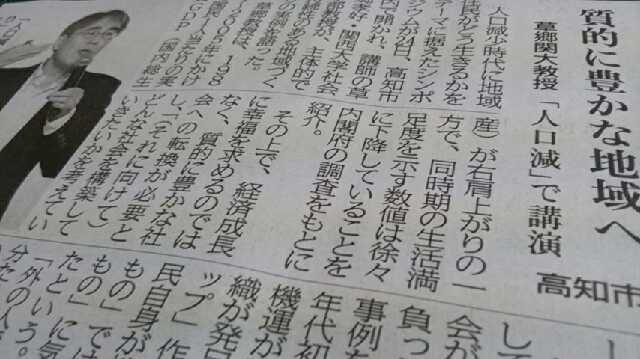 質的に豊かな地域へ
草郷関大教授 「人口減」で講演
高知市
人口減少時代に地域
住民がどう生きるかを
テーマに据えたシンポ
ジウムが4日、高知市
内で開かれ、講師の草
郷孝好・関西大学社会
学部教授が、主体的で
ある地域づく
りの実例を語った。
草郷教授は、198
国民1人当たり
GDP(国内総生
産)が右肩上がりの一
方で、同時期の生活満
足度を示す数値は徐々
に下降していることを
内閣府の調査をもとに
紹介。
その上で、経済成長
に幸福を求めるのでは
なく、質的に豊かな社
会への転換が必要と
し、「(それに向けて)
どんな社会を構築して
いきたいかを考えてい
して
会が
負っ
事例を
年代初
機運が
織が発
ップ」作
民自身が
もの」では
もの」に気
たという。
「外の
分た